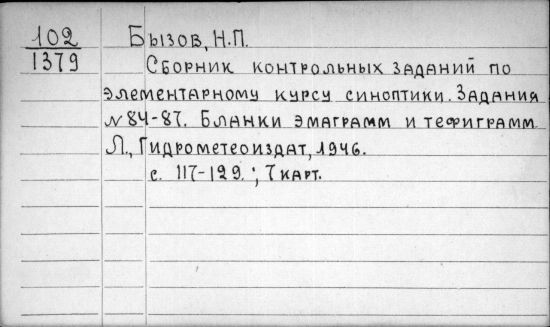 102
1379
Бызов, Н.П.
Сборник контрольных заданий по
элементарному курсу синоптики. Задания
№ 84-87. Бланки эмаграмм и тефиграмм
Л., Гидрометеоиздат, 1946.
с. 117-129.; 7 карт.